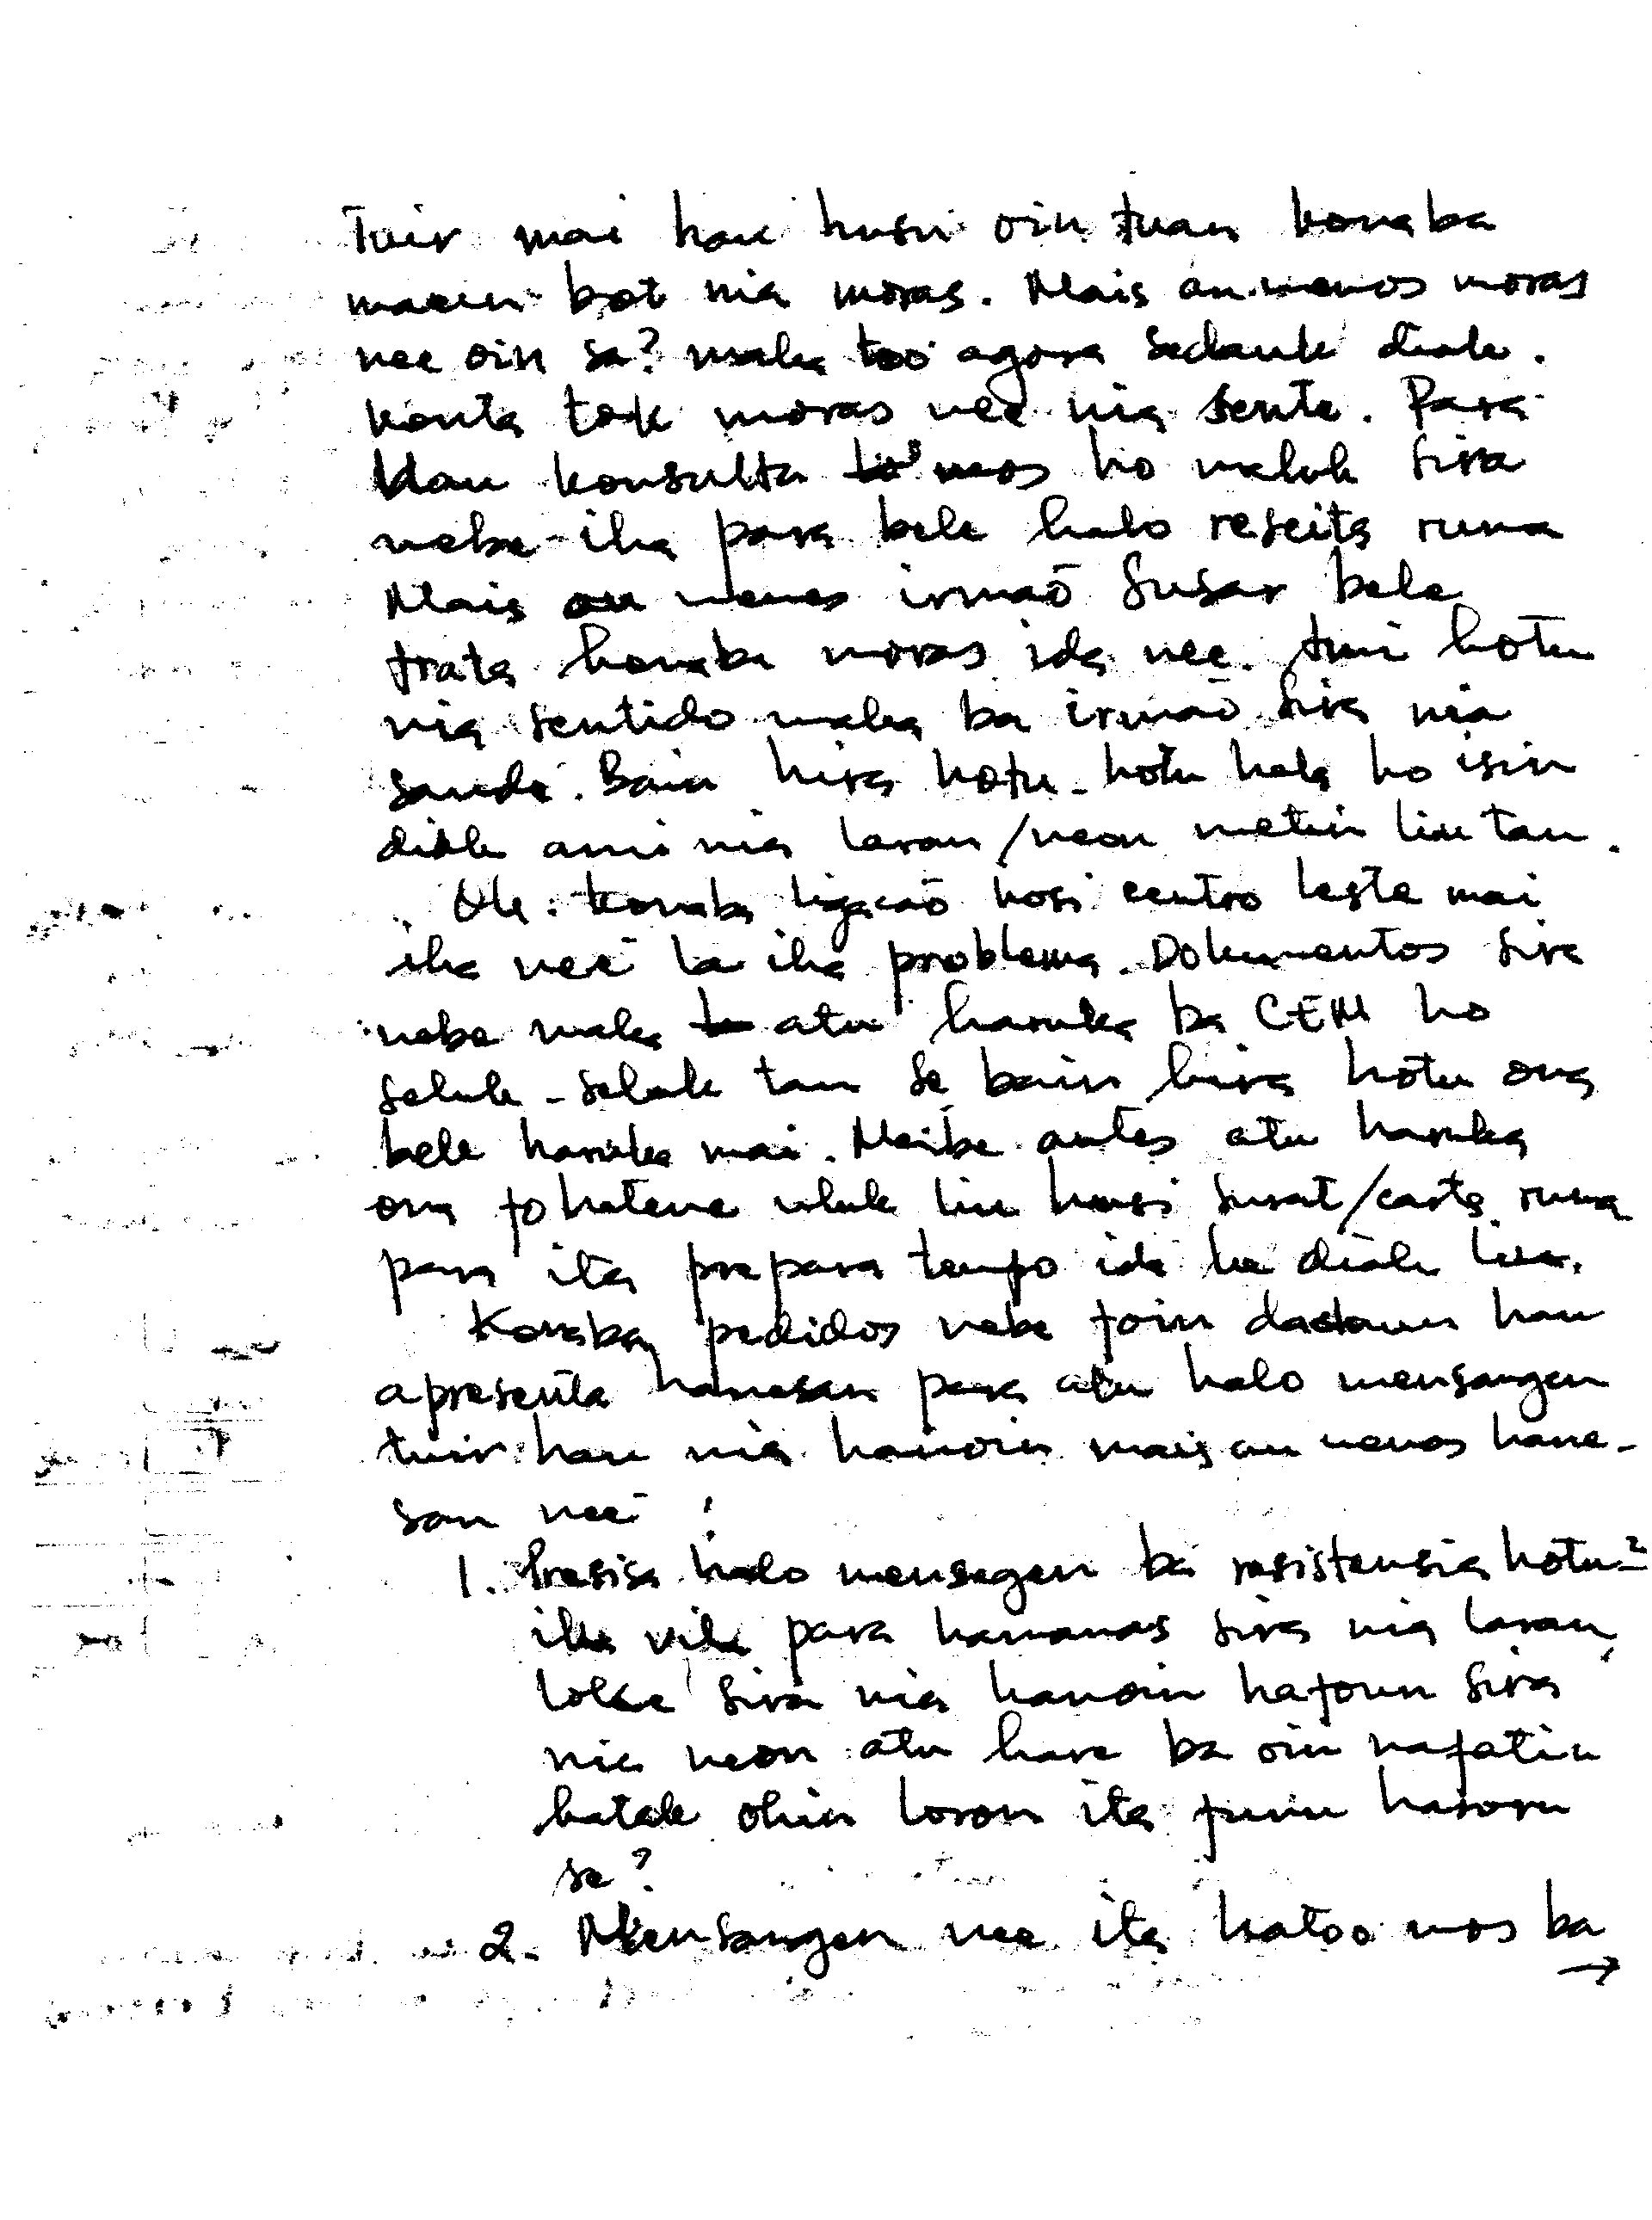 Tuir mai hau husu oin tuan konaba
maun bot nia moras. Mais ou menos moras
nee oin sa? maka too agora sedauk diak.
konta tok moras nee nia sente. Para
Hau konsulta mos ho maluk sira
nebe iha para bele halo reseita ruma
Mais ou menos irmaõ susar bele
trata konaba moras ida nee. tuir hotu
nia sentido maka ba irmaõ sira nia
saude. Bain hira hotu-hotu hela ho isin
diak ami nia laran/neon metin liu tan.
Ok. konaba ligacaõ hosi centro leste mai
iha nee la iha problema. Dokumentos sira
nebe maka atu haruka ba CEM ho
seluk-seluk tan se bain hira hotu ona
bele haruka mai. Maibe antes atu haruka
ona fo hatene uluk liu husi surat/carta ruma
para ita prepara tempo ida ke diak liu.
Konaba pedidos nebe foin dadauk hau
apresenta hanesan para atu halo mensangen
tuir hau nia hanoin mais ou menos hane-
san nee :
1. Presisa halo mensagen ba resistensia hotu²
iha vila para hamanas sira nia laran,
loke sira nia hanoin hafoun sira
nia neon atu hare ba oin nafatin
katak ohin loron ita funu hasoru
se?
2. Mensangen nee ita hatoo mos ba
→